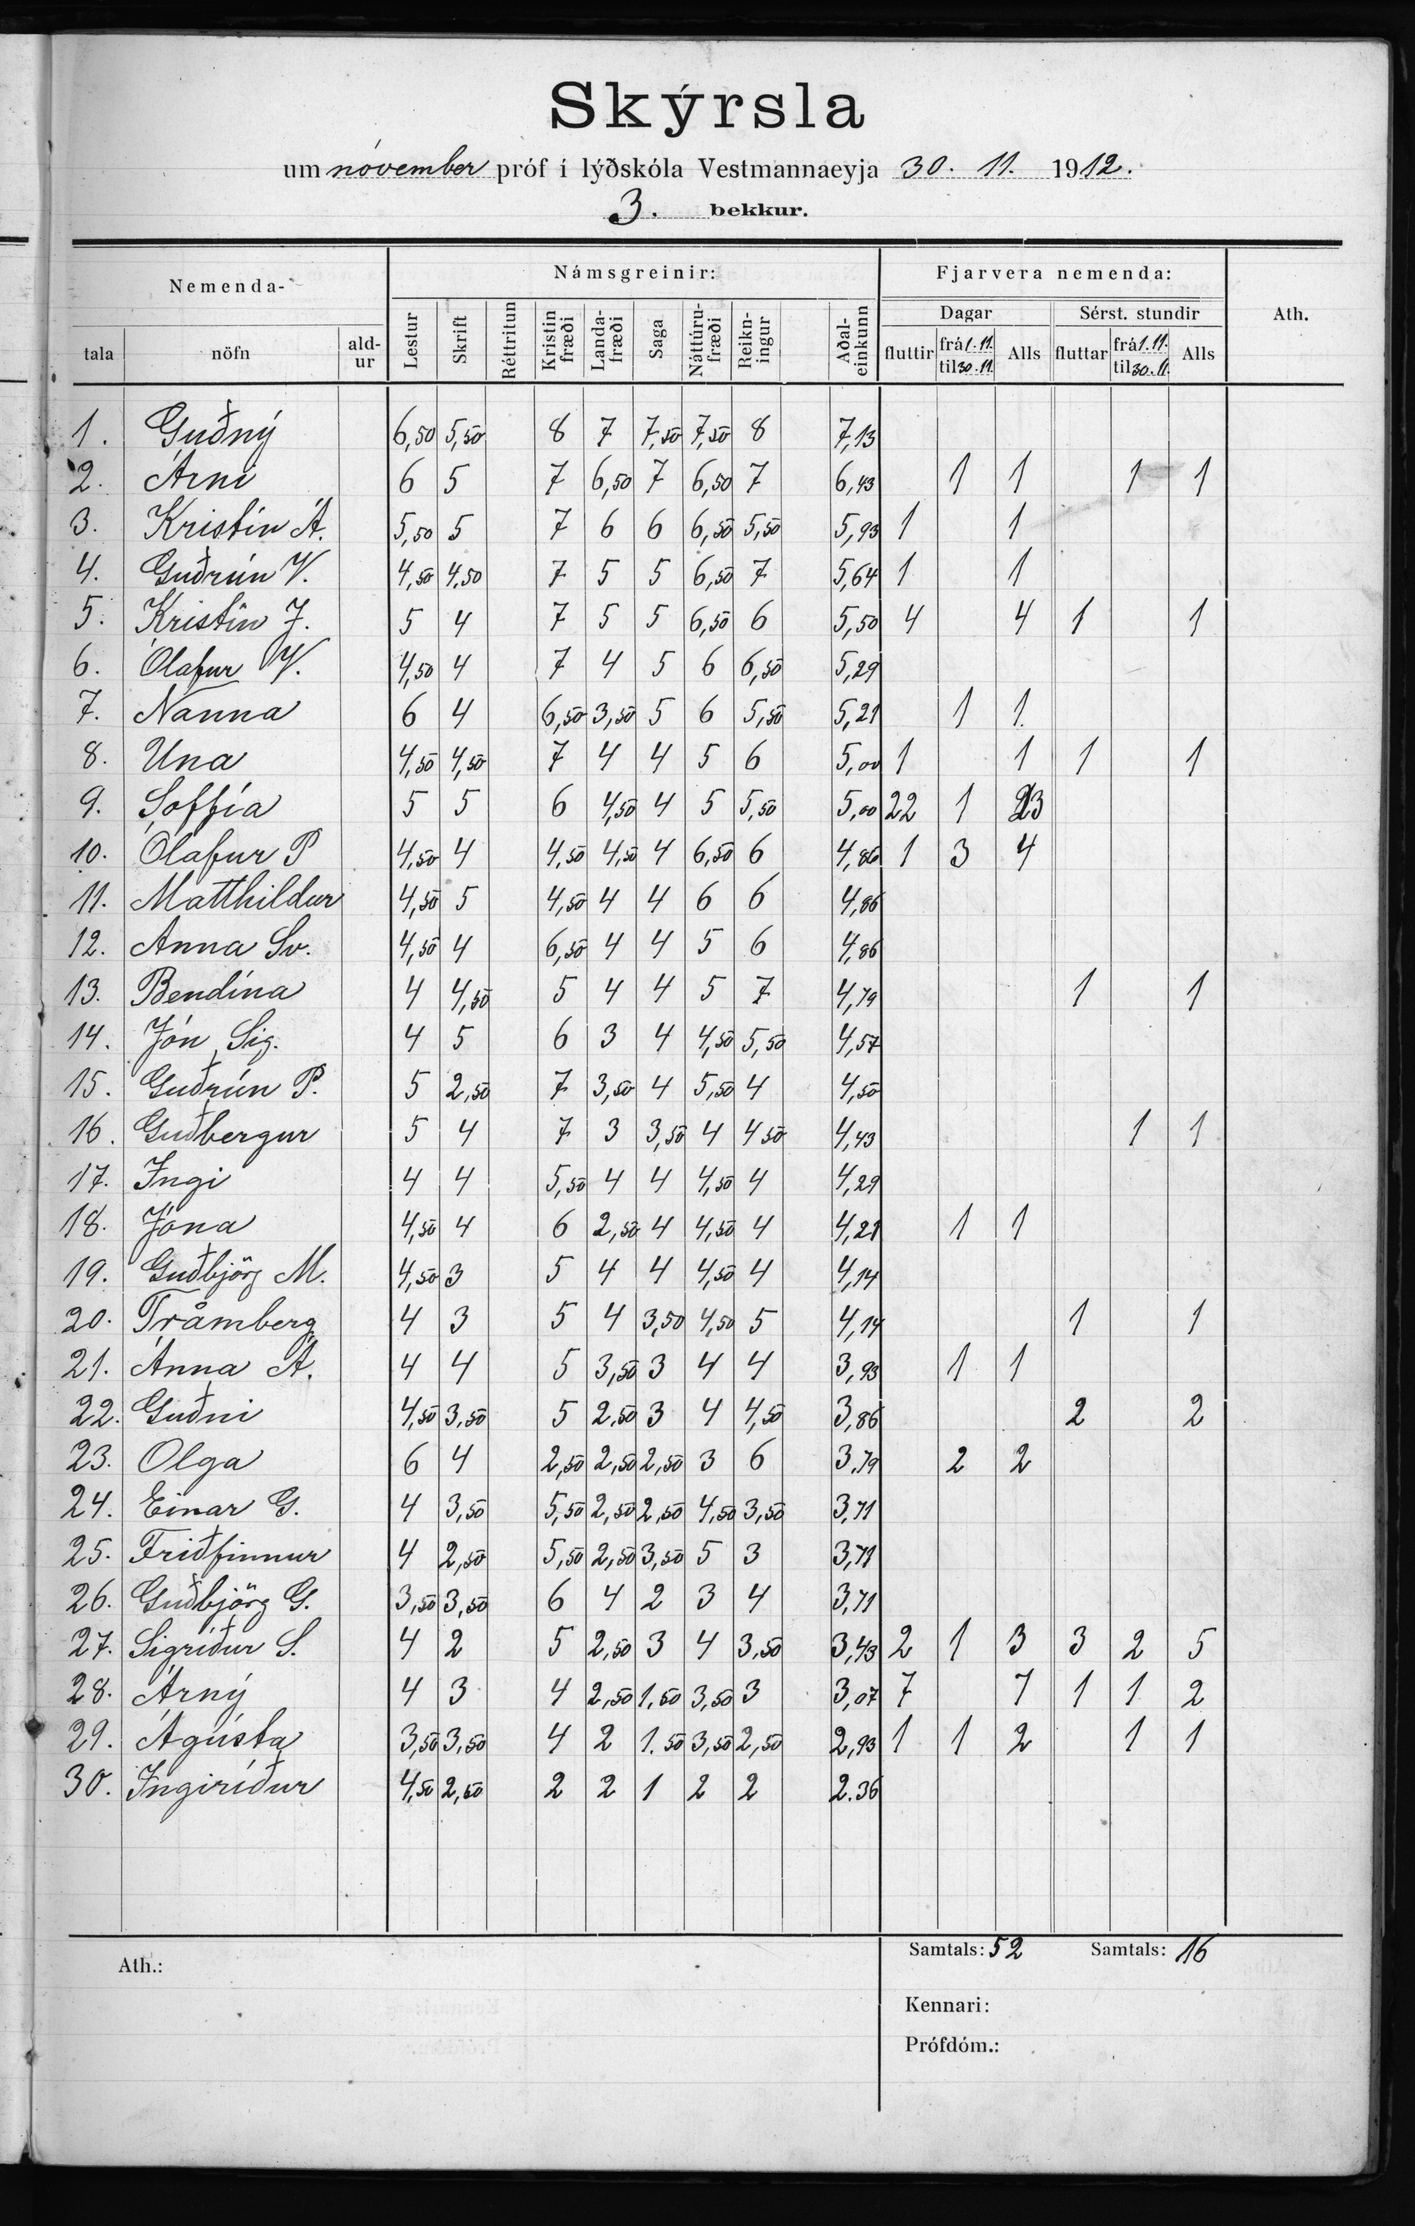 Skýrsla
um nóvember próf í lýðskóla Vestmannaeyja 30. 11. 1912.
3. bekkur.
Nemenda- Námsgreinir: Fjarvera nemenda: Ath.
Dagar Sérst. stundir
tala nöfn ald-ur Lestur Skrift Réttritun Kristin fræði Landa-fræði Saga Náttúru-fræði Reikn-ingur Aðal-einkunn fluttir frá 1.11. til 30.11. Alls fluttar frá 1.11. til 30.11. Alls
1. Guðný 6,50 5,50 8 7 7,50 7,50 8 7,13
2. Árni 6 5 7 6,50 7 6,50 7 6,43 1 1 1 1
3. Kristín Á. 5,50 5 7 6 6 6,50 5,50 5,93 1 1
4. Guðrún V. 4,50 4,50 7 5 5 6,50 7 5,64 1 1
5. Kristín J. 5 4 7 5 5 6,50 6 5,50 4 4 1 1
6. Ólafur V. 4,50 4 7 4 5 6 6,50 5,29
7. Nanna 6 4 6,50 3,50 5 6 5,50 5,21 1 1
8. Una 4,50 4,50 7 4 4 5 6 5,00 1 1 1 1
9. Soffía 5 5 6 4,50 4 5 5,50 5,00 22 1 23
10. Ólafur P 4,50 4 4,50 4,50 4 6,50 6 4,86 1 3 4
11. Matthildur 4,50 5 4,50 4 4 6 6 4,86
12. Anna Sv. 4,50 4 6,50 4 4 5 6 4,86
13. Bendína 4 4,50 5 4 4 5 7 4,79 1 1
14. Jón Sig. 4 5 6 3 4 4,50 5,50 4,57
15. Guðrún P. 5 2,50 7 3,50 4 5,50 4 4,50
16. Guðbergur 5 4 7 3 3,50 4 4 50 4,43 1 1
17. Ingi 4 4 5,50 4 4 4,50 4 4,29
18. Jóna 4,50 4 6 2,50 4 4,50 4 4,21 1 1
19. Guðbjörg M. 4,50 3 5 4 4 4,50 4 4,14
20. Tråmberg 4 3 5 4 3,50 4,50 5 4,14 1 1
21. Anna Á. 4 4 5 3,50 3 4 4 3,93 1 1
22. Guðni 4,50 3,50 5 2,50 3 4 4,50 3,86 2 2
23. Olga 6 4 2,50 2,50 2,50 3 6 3,79 2 2
24. Einar G. 4 3,50 5,50 2,50 2,50 4,50 3,50 3,71
25. Friðfinnur 4 2,50 5,50 2,50 3,50 5 3 3,71
26. Guðbjörg G. 3,50 3,50 6 4 2 3 4 3,71
27. Sigríður S. 4 2 5 2,50 3 4 3,50 3,43 2 1 3 3 2 5
28. Árný 4 3 4 2,50 1,50 3,50 3 3,07 7 7 1 1 2
29. Ágústa 3,50 3,50 4 2 1.50 3,50 2,50 2,93 1 1 2 1 1
30. Ingiríður 4,50 2,50 2 2 1 2 2 2.36
Samtals: 52 Samtals: 16
Ath.:
Kennari:
Prófdóm.: